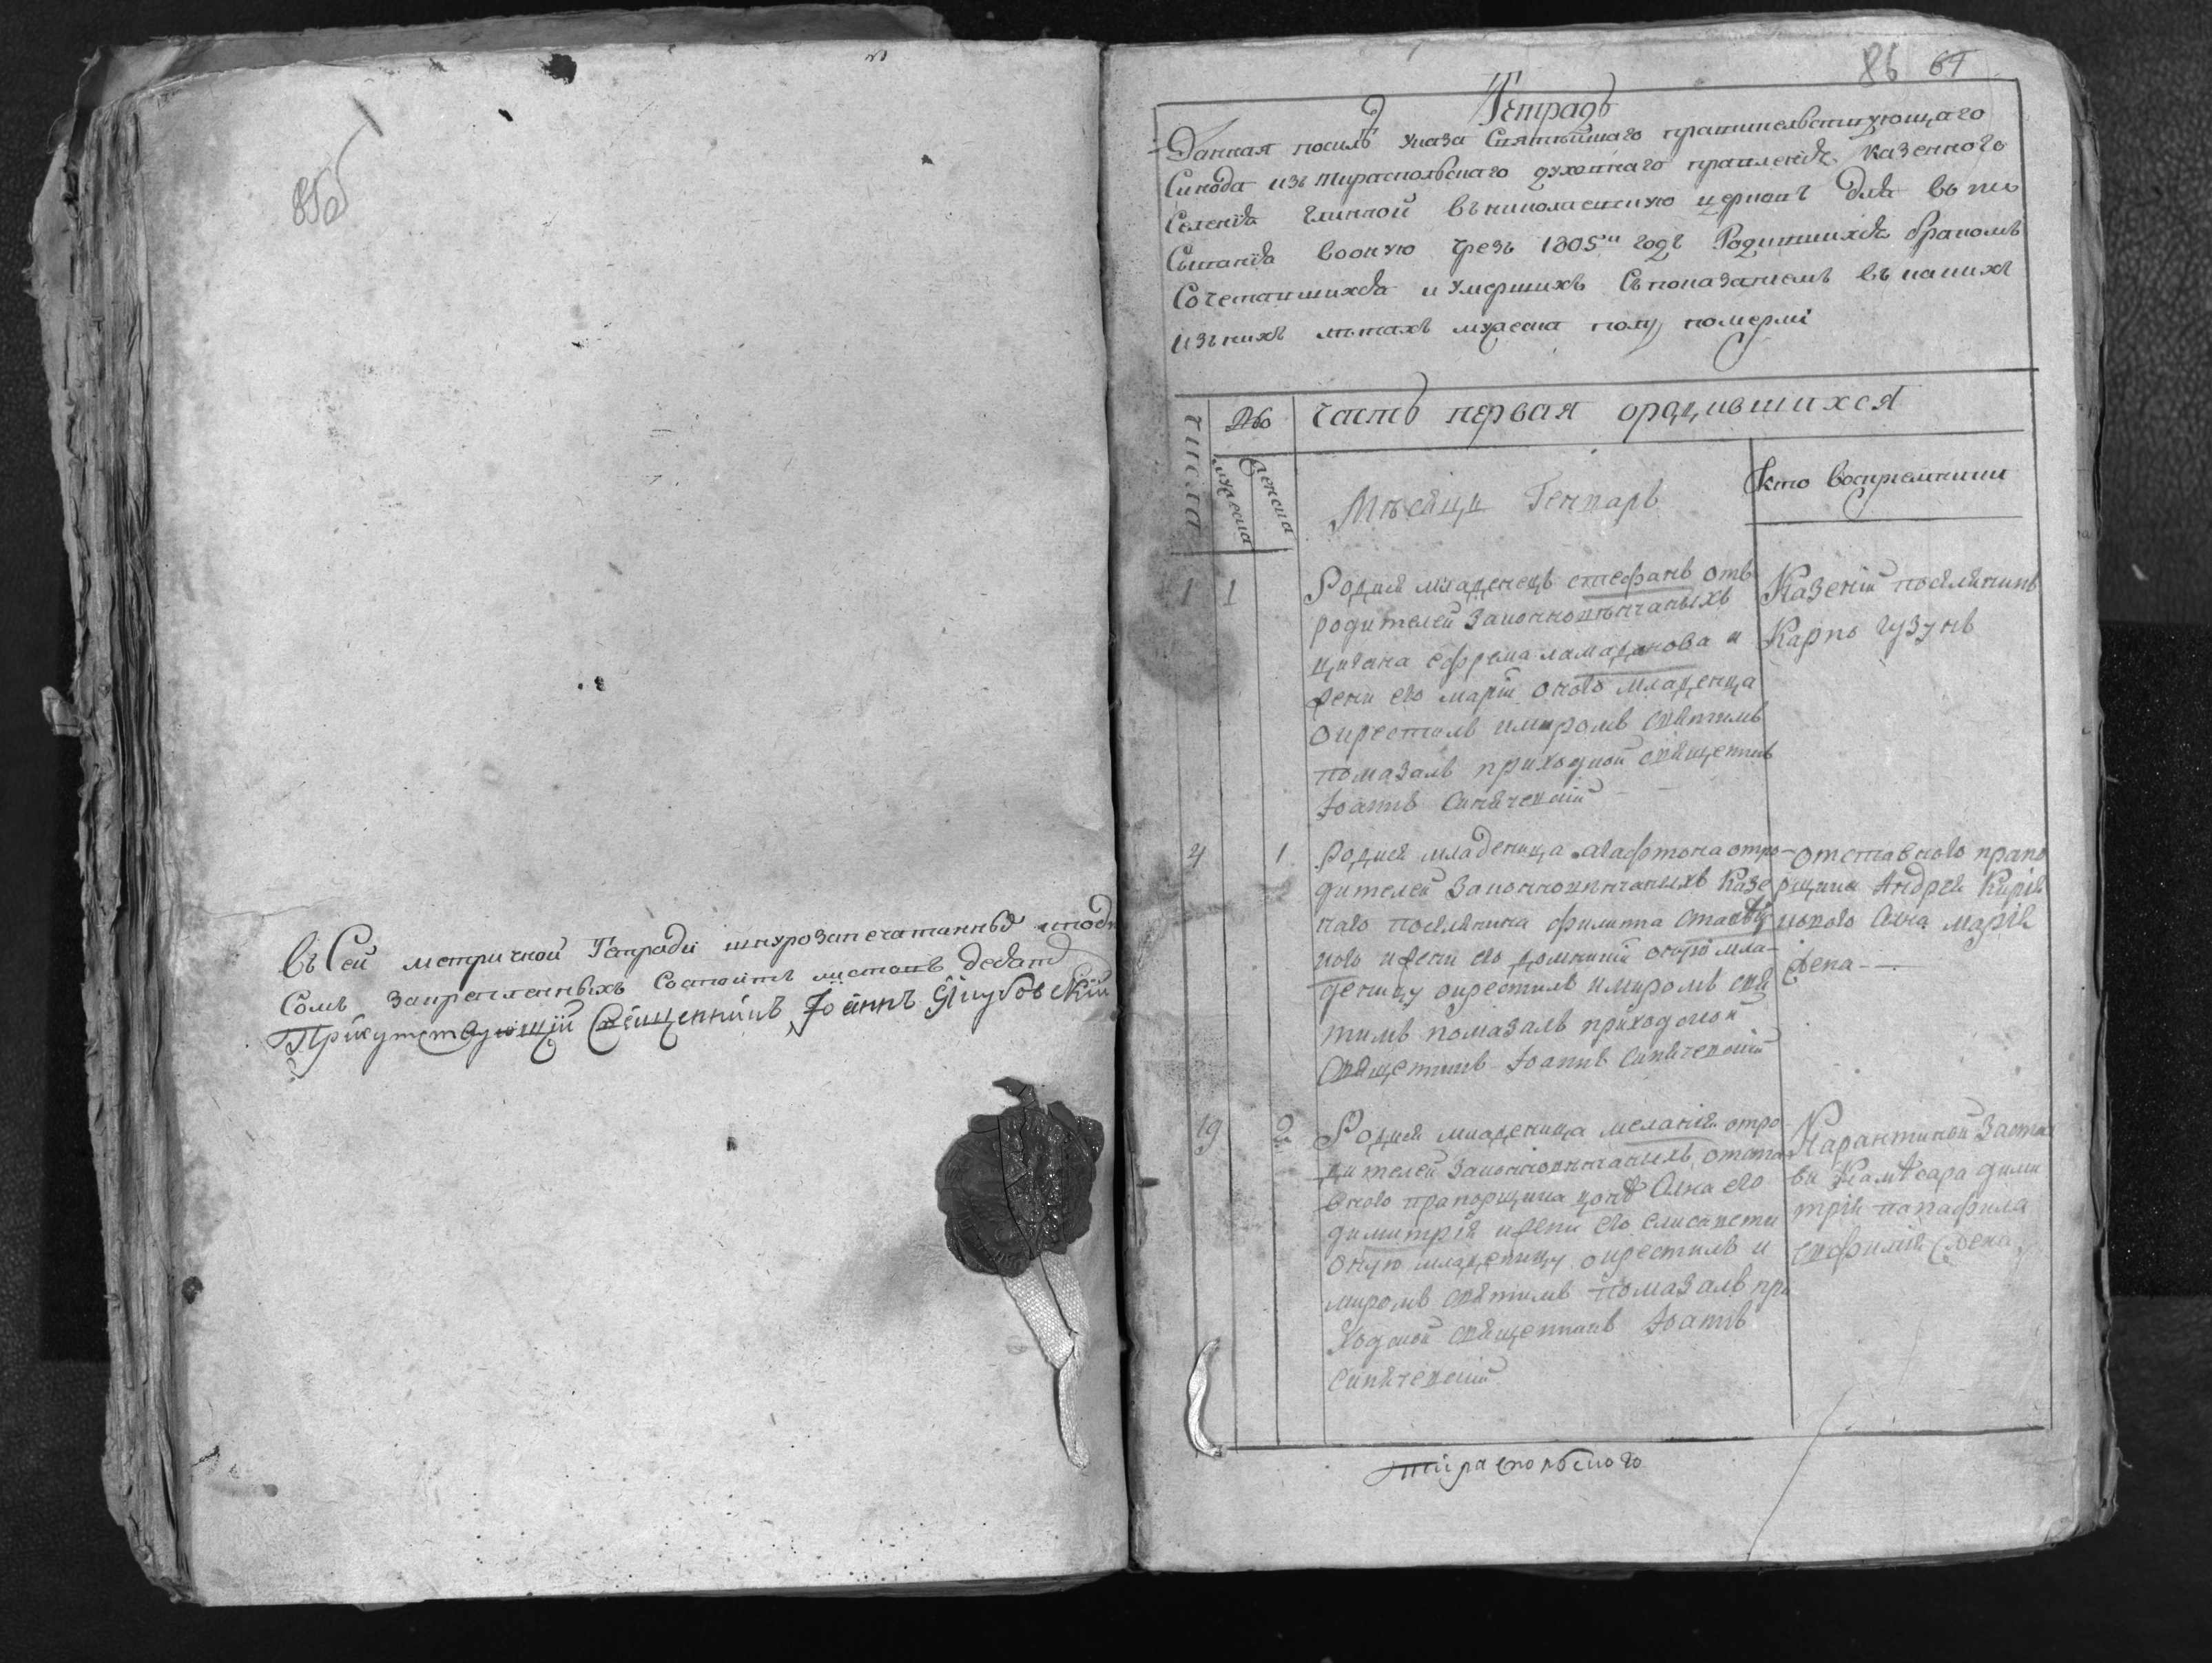 85об
Въ Сей метричной Тетради шнурозапечатанныя и подъ
Сомъ Закрепленныхъ Состоитъ листовъ десять
Присутствующій Священникъ Іоаннъ Якубовскій
86 64
Тетрадь
Данная посилѣ указа Святѣйшаго правительствующаго
Синода изъ тираспольскаго духовнаго правленія казенного
Селенія Глинной въ николаевскую церковъ для въпи
Сыванія воону чрезъ 1805й годъ Родившихся бракомъ
Сочетавшихся и умершихъ Съпоказаніемъ въ какихъ
изънихъ лѣтахъ мужеска полу померли
числа
мужеска
женска
Часть первая ородившихся
Мѣсяцъ Генварь
кто воспремники
1 1
Родися младенецъ стефанъ отъ
родителей Законновѣнчаныхъ
цигана ефрема ламаднова и
жени его маріи оного младенца
окрестилъ имиромъ святимъ
помазалъ приходной священникъ
Іоаннъ Синячевскій
Казеній поселянинъ
Карпъ гузунъ
4 1
Родися младеница агафиона отро-
дителей Законновѣнчаныхъ Казе
наго поселянина филиппа
ного ижени его домникіи оную мла-
деницу окрестилъ имиромъ свя
тимъ помазалъ приходской
священникъ Іоаннъ Синячевскій
отставного прапо
рщика Андрея Кирія
кового Анна марія
жена
19 2
Родися младеница меланія отро
дителей Законновѣнчаныхъ отста
вного прапорщика
димитрія ижени его елисавети
оную младеницу окрестилъ и
миромъ святимъ помазалъ при
ходской священникъ Іоаннъ
Синячевскій
Карантиной Заста
ви Комѣсара дими
трія
жена
тираспольского